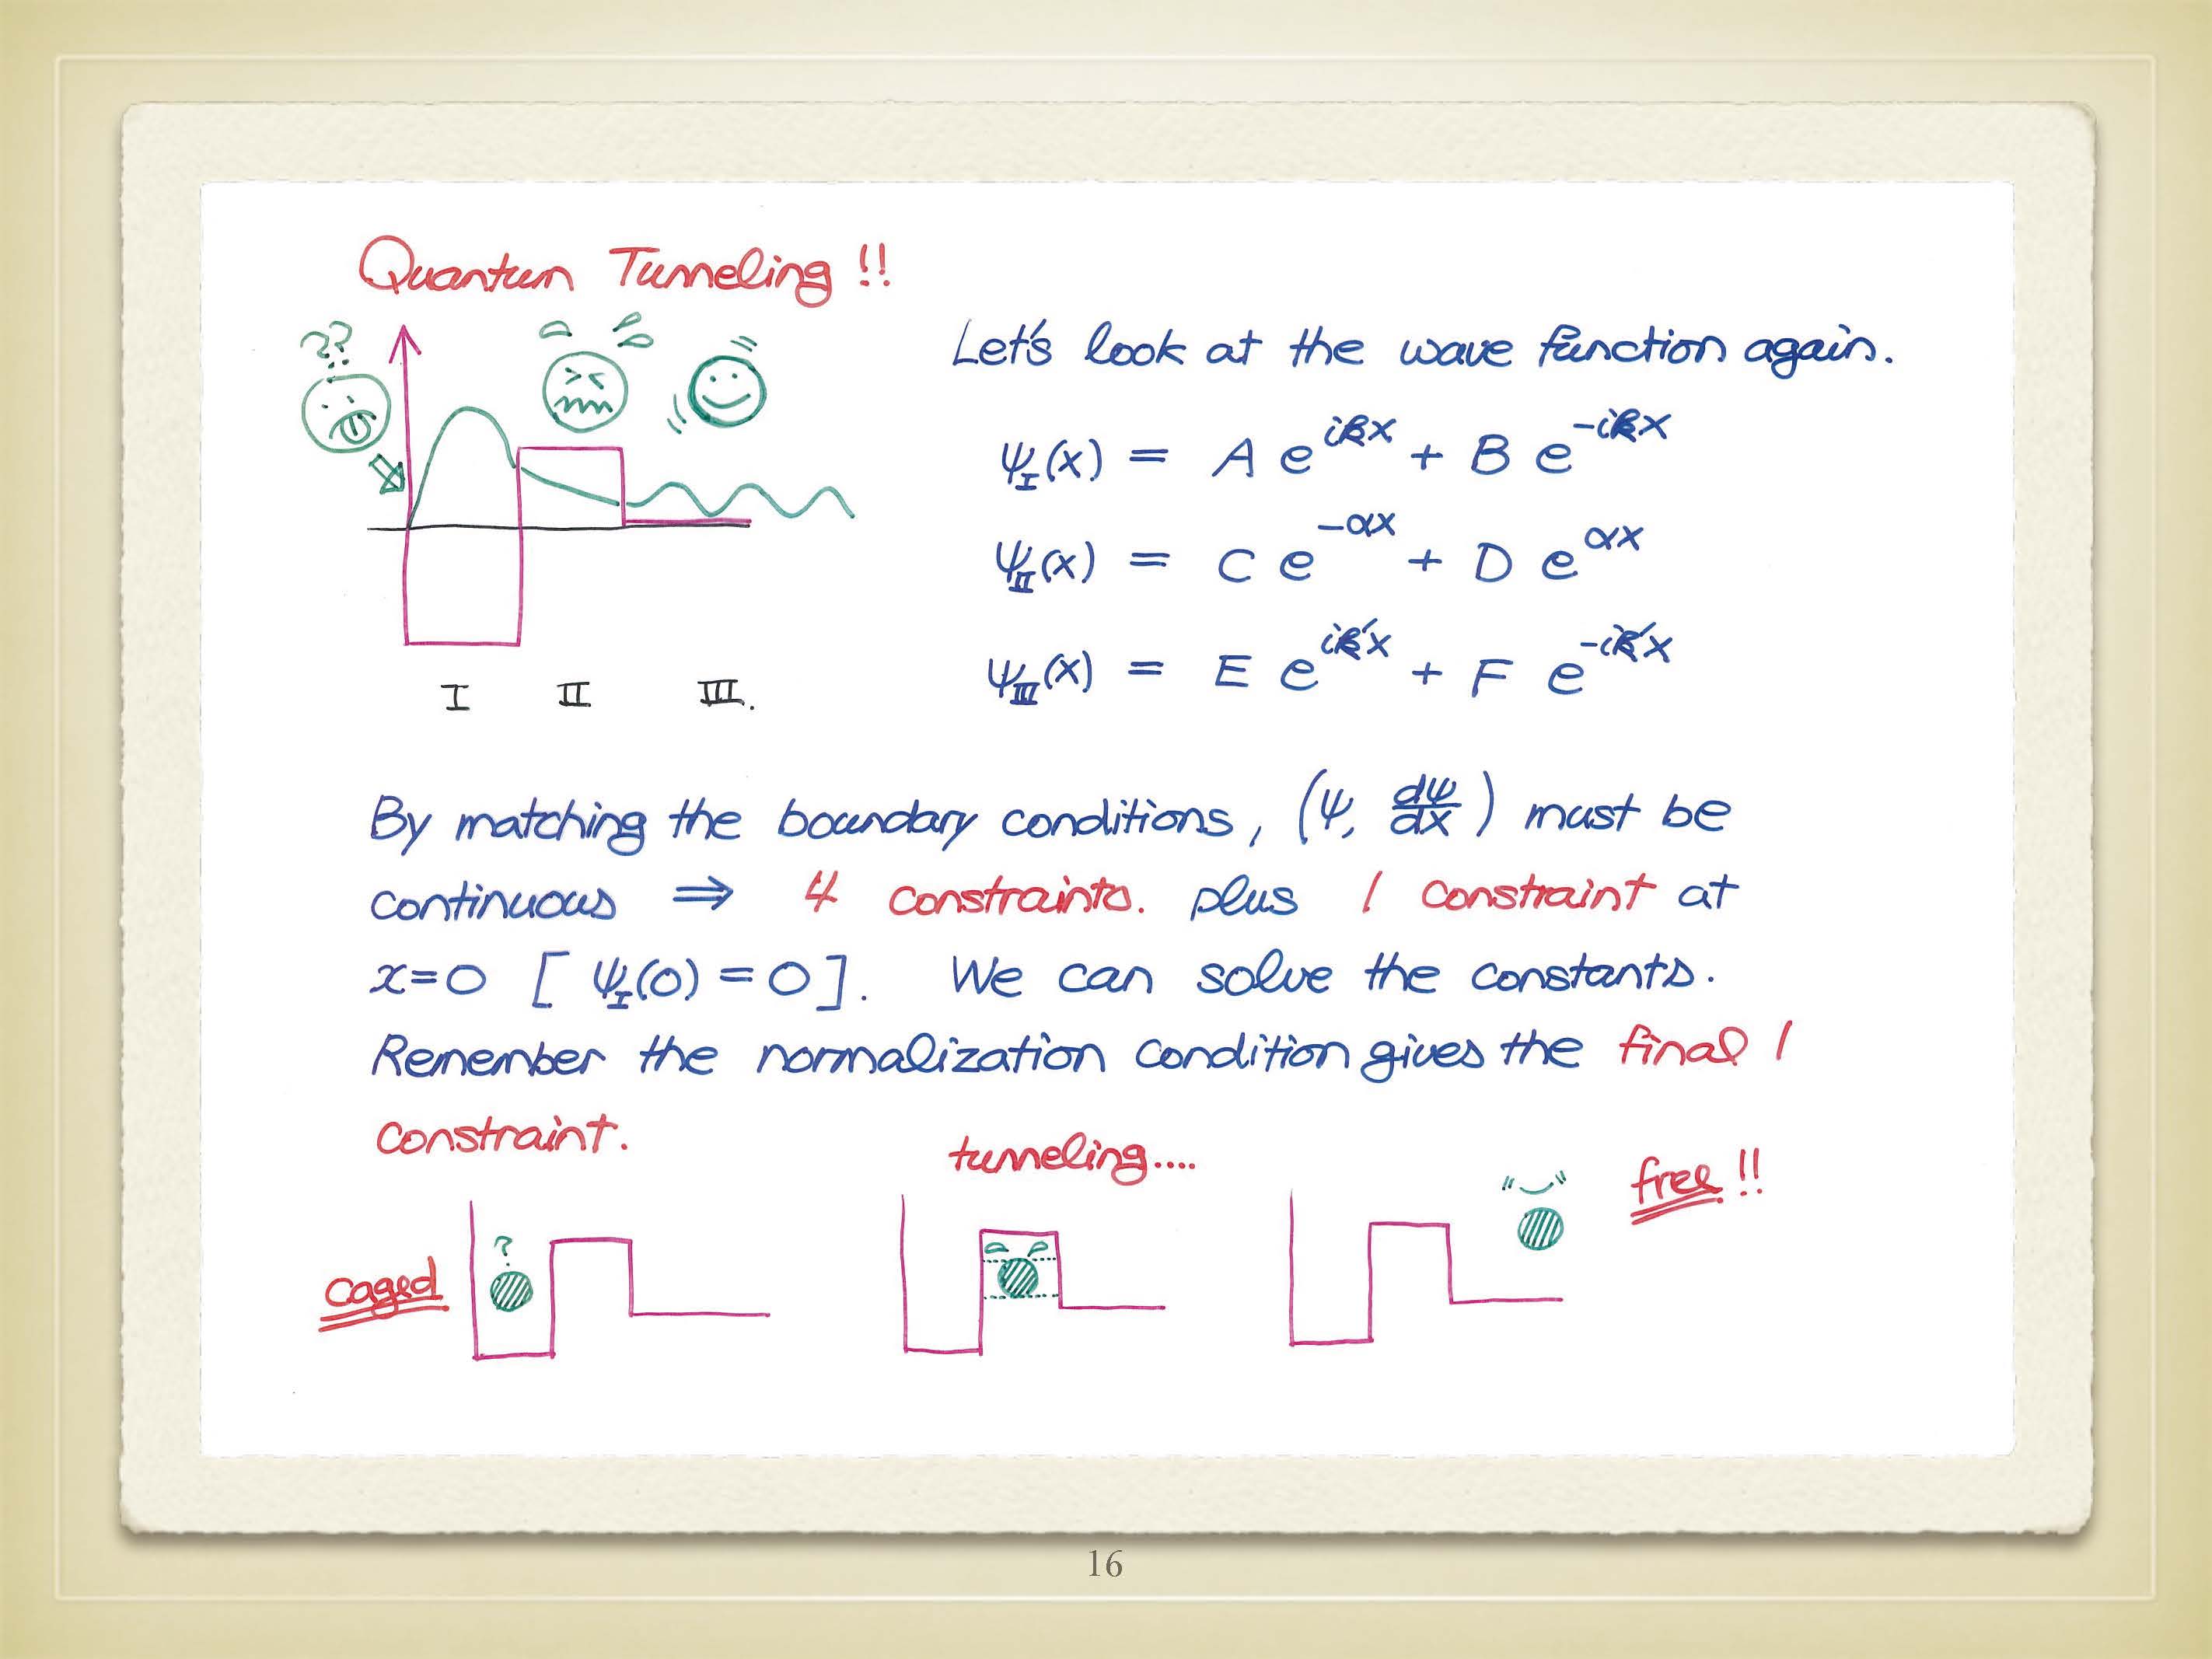 Quantum Tunneling !!
??
Let's look at the wave function again.
ψ_I(x) = A e^{ikx} + B e^{-ikx}
ψ_II(x) = C e^{-αx} + D e^{αx}
ψ_III(x) = E e^{ik'x} + F e^{-ik'x}
I II III.
By matching the boundary conditions, (ψ, dψ/dx) must be
continuous ⇒ 4 constraints. plus 1 constraint at
x=0 [ ψ_I(0) = 0 ]. We can solve the constants.
Remember the normalization condition gives the final 1
constraint.
tunneling....
free !!
?
caged
16